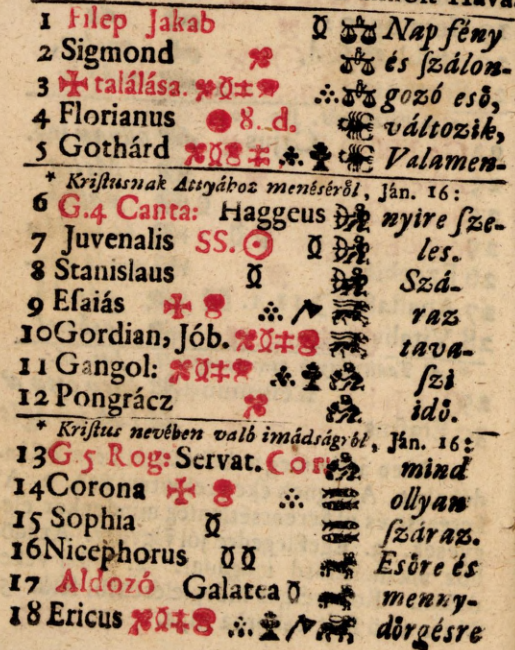 1 Filep Jakab Nap fény
2 Sigmond és ſzálon-
3 ✠ találása. gozó esö,
4 Florianus 8. d. változik,
5 Gothárd Valamen-
* Kriſtusnak Attyához menéséröl, Ján. 16:
6 G.4 Canta: Haggeus nyire ſze-
7 Juvenalis SS. les.
8 Stanislaus Szá-
9 Eſaiás raz
10 Gordian, Jób. tava-
11 Gangol: ſzi
12 Pongrácz idö.
* Kriſtus nevében való imádságról, Ján. 16:
13 G.5 Rog: Servat. mind
14 Corona ollyan
15 Sophia ſzáraz.
16 Nicephorus Esöre és
17 Aldozó Galatea menny-
18 Ericus dörgésre